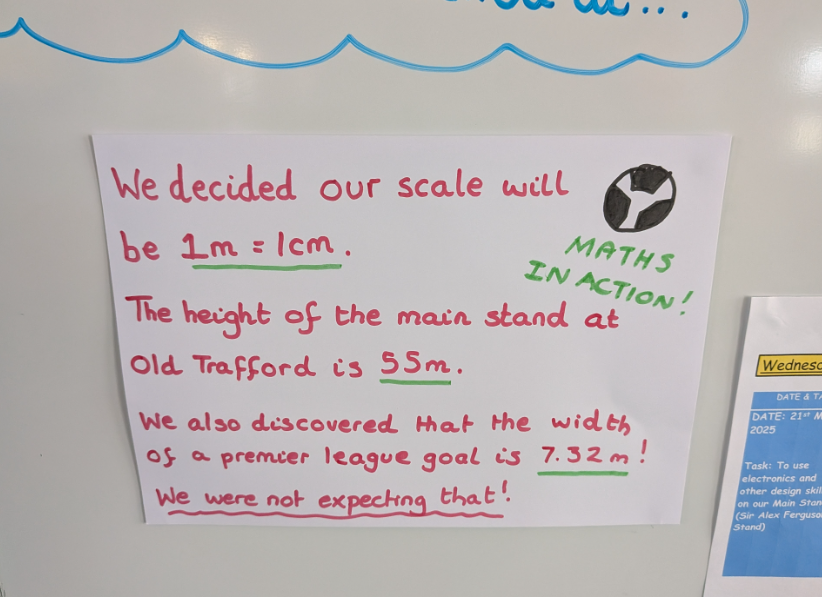 We decided our scale will
be 1m = 1cm.
MATHS
IN ACTION!
The height of the main stand at
Old Trafford is 55m.
We also discovered that the width
of a premier league goal is 7.32m!
We were not expecting that!
DATE &
DATE: 21st
2025
Task: To use
electronics and
other design
on our Main
(Sir Alex
Stand)